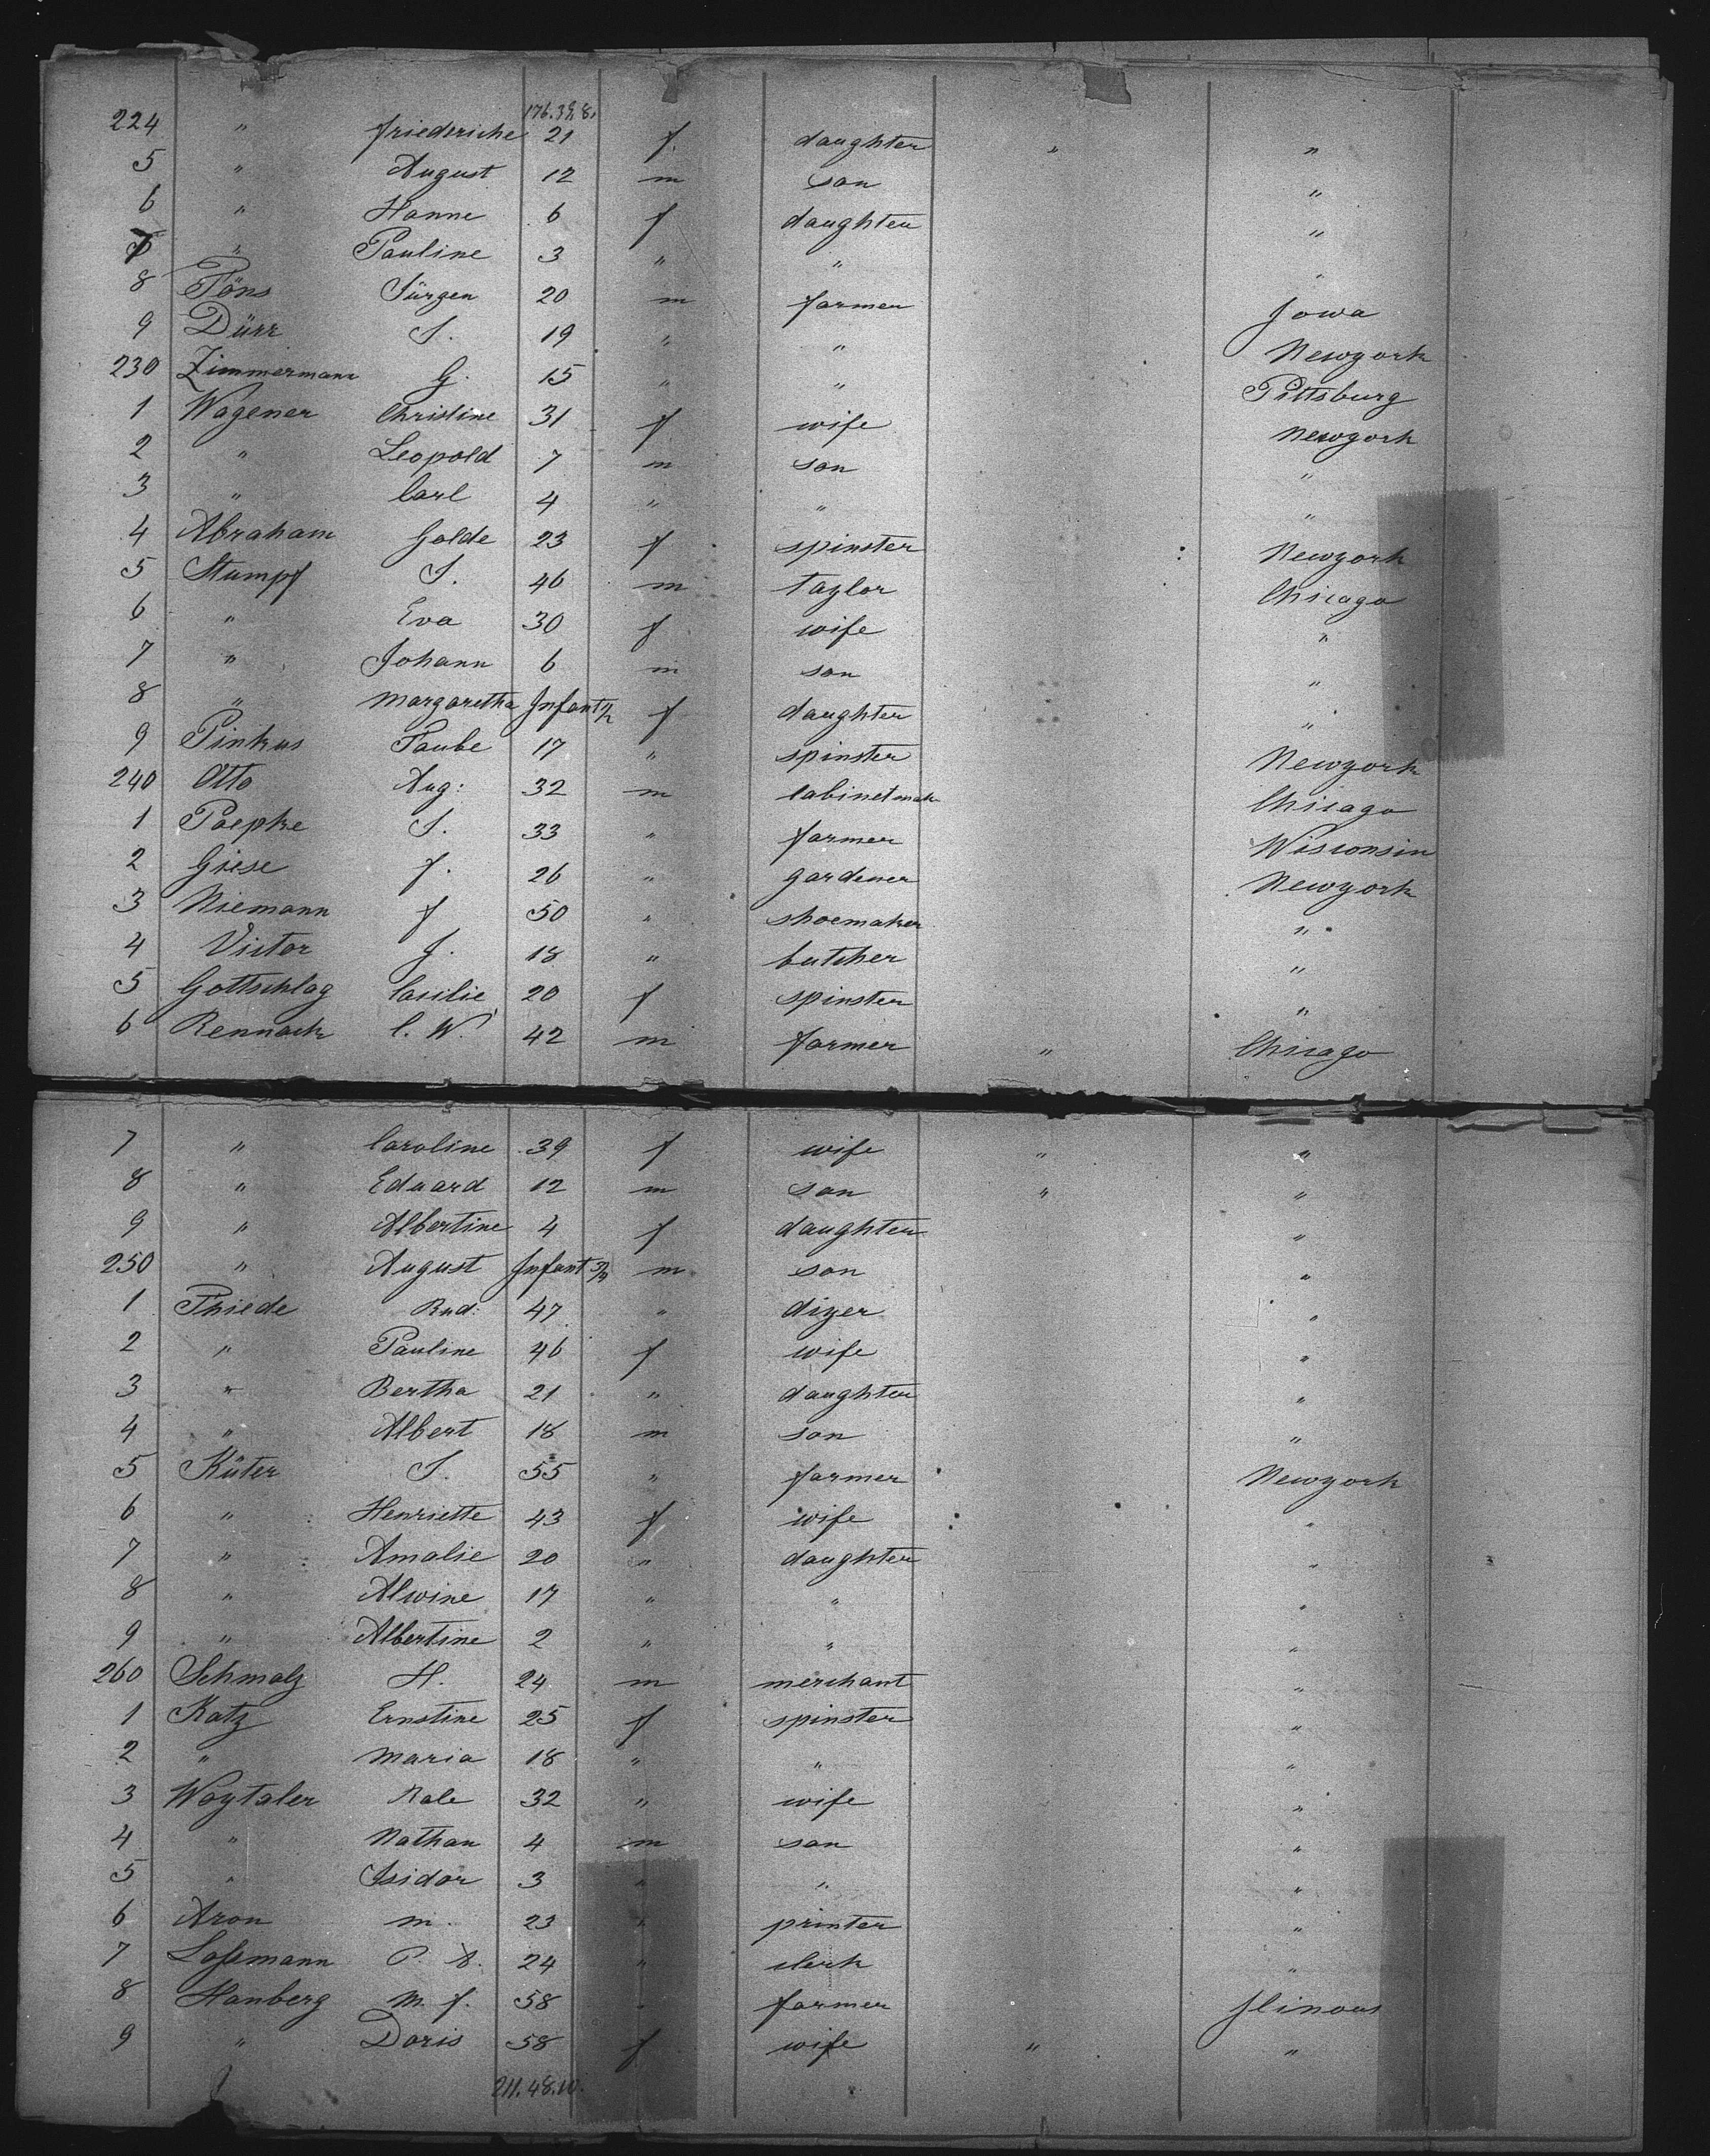 176.39.8.
224 " Friederiche 21 f. daughter " "
5 " August 12 m son "
6 " Hanne 6 f daughter "
7 " Pauline 3 " " "
8 Töns Jürgen 20 m farmer Iowa
9 Dürr J. 19 " " Newyork
230 Zimmermann G. 15 " " Pittsburg
1 Wagener Christine 31 f wife Newyork
2 " Leopold 7 m son "
3 " Carl 4 " " "
4 Abraham Golde 23 f spinster Newyork
5 Stumpf J. 46 m taylor Chicago
6 " Eva 30 f wife "
7 " Johann 6 m son "
8 " Margaretha Infant f daughter "
9 Pinkus Taube 17 " spinster Newyork
240 Otto Aug: 32 m Cabinetmak Chicago
1 Paepke J. 33 " farmer Wisconsin
2 Giese f. 26 " gardener Newyork
3 Niemann f 50 " shoemaker "
4 Victor J. 18 " butcher "
5 Gottschlag Cacilie 20 f spinster "
6 Rennack C. W. 42 m farmer " Chicago
7 " Caroline 39 f wife " "
8 " Eduard 12 m son " "
9 " Albertine 4 f daughter "
250 " August Infant m son "
1 Thiede Rud: 47 " diyer "
2 " Pauline 46 f wife "
3 " Bertha 21 " daughter "
4 " Albert 18 m son "
5 Küter J. 55 " farmer Newyork
6 " Henriette 43 f wife "
7 " Amalie 20 " daughter "
8 " Alwine 17 " " "
9 " Albertine 2 " " "
260 Schmalz H. 24 m merchant "
1 Katz Ernstine 25 f spinster "
2 " Maria 18 " " "
3 Woytaler Rale 32 " wife "
4 " Nathan 4 m son "
5 " Isidor 3 " " "
6 Aron M. 23 " printer "
7 Loſsmann P. A. 24 " clerk "
8 Hanberg M. f. 58 " farmer Ilinous
9 " Doris 58 f wife " "
211.48.10.